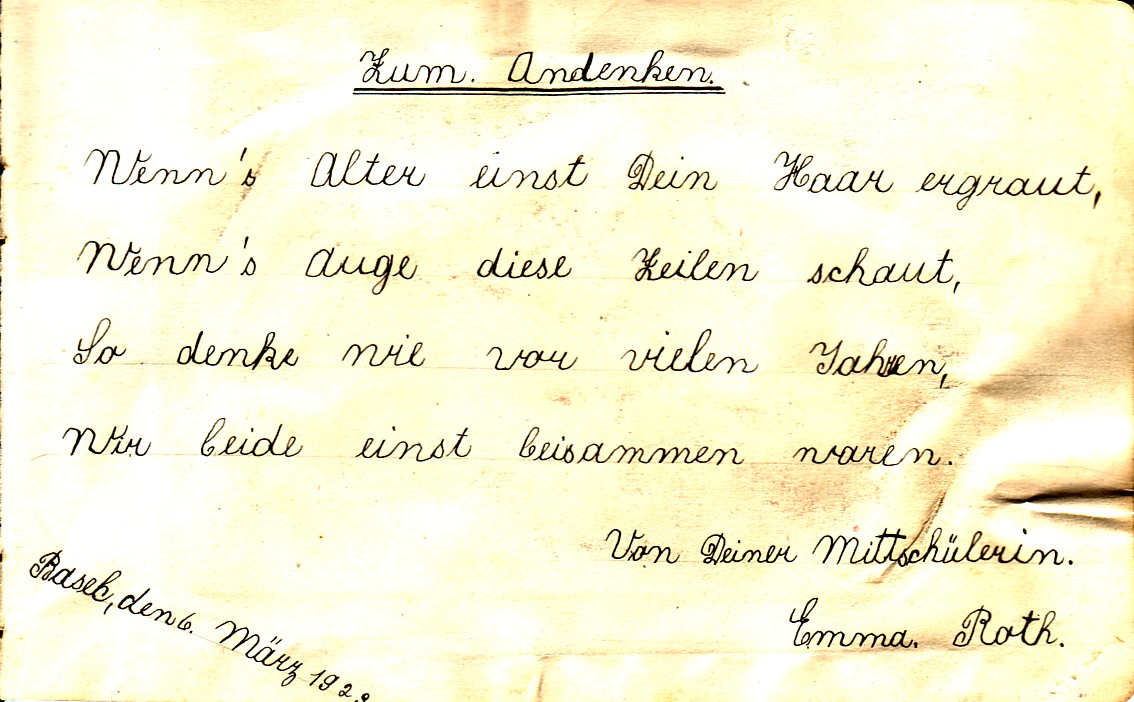 Zum. Andenken.
Wenn's Alter einst Dein Haar ergraut,
Wenn's Auge diese Zeilen schaut,
So denke wie vor vielen Jahren,
Wir beide einst beisammen waren.
Von Deiner Mittschülerin.
Emma. Roth.
Basel, den 6. März